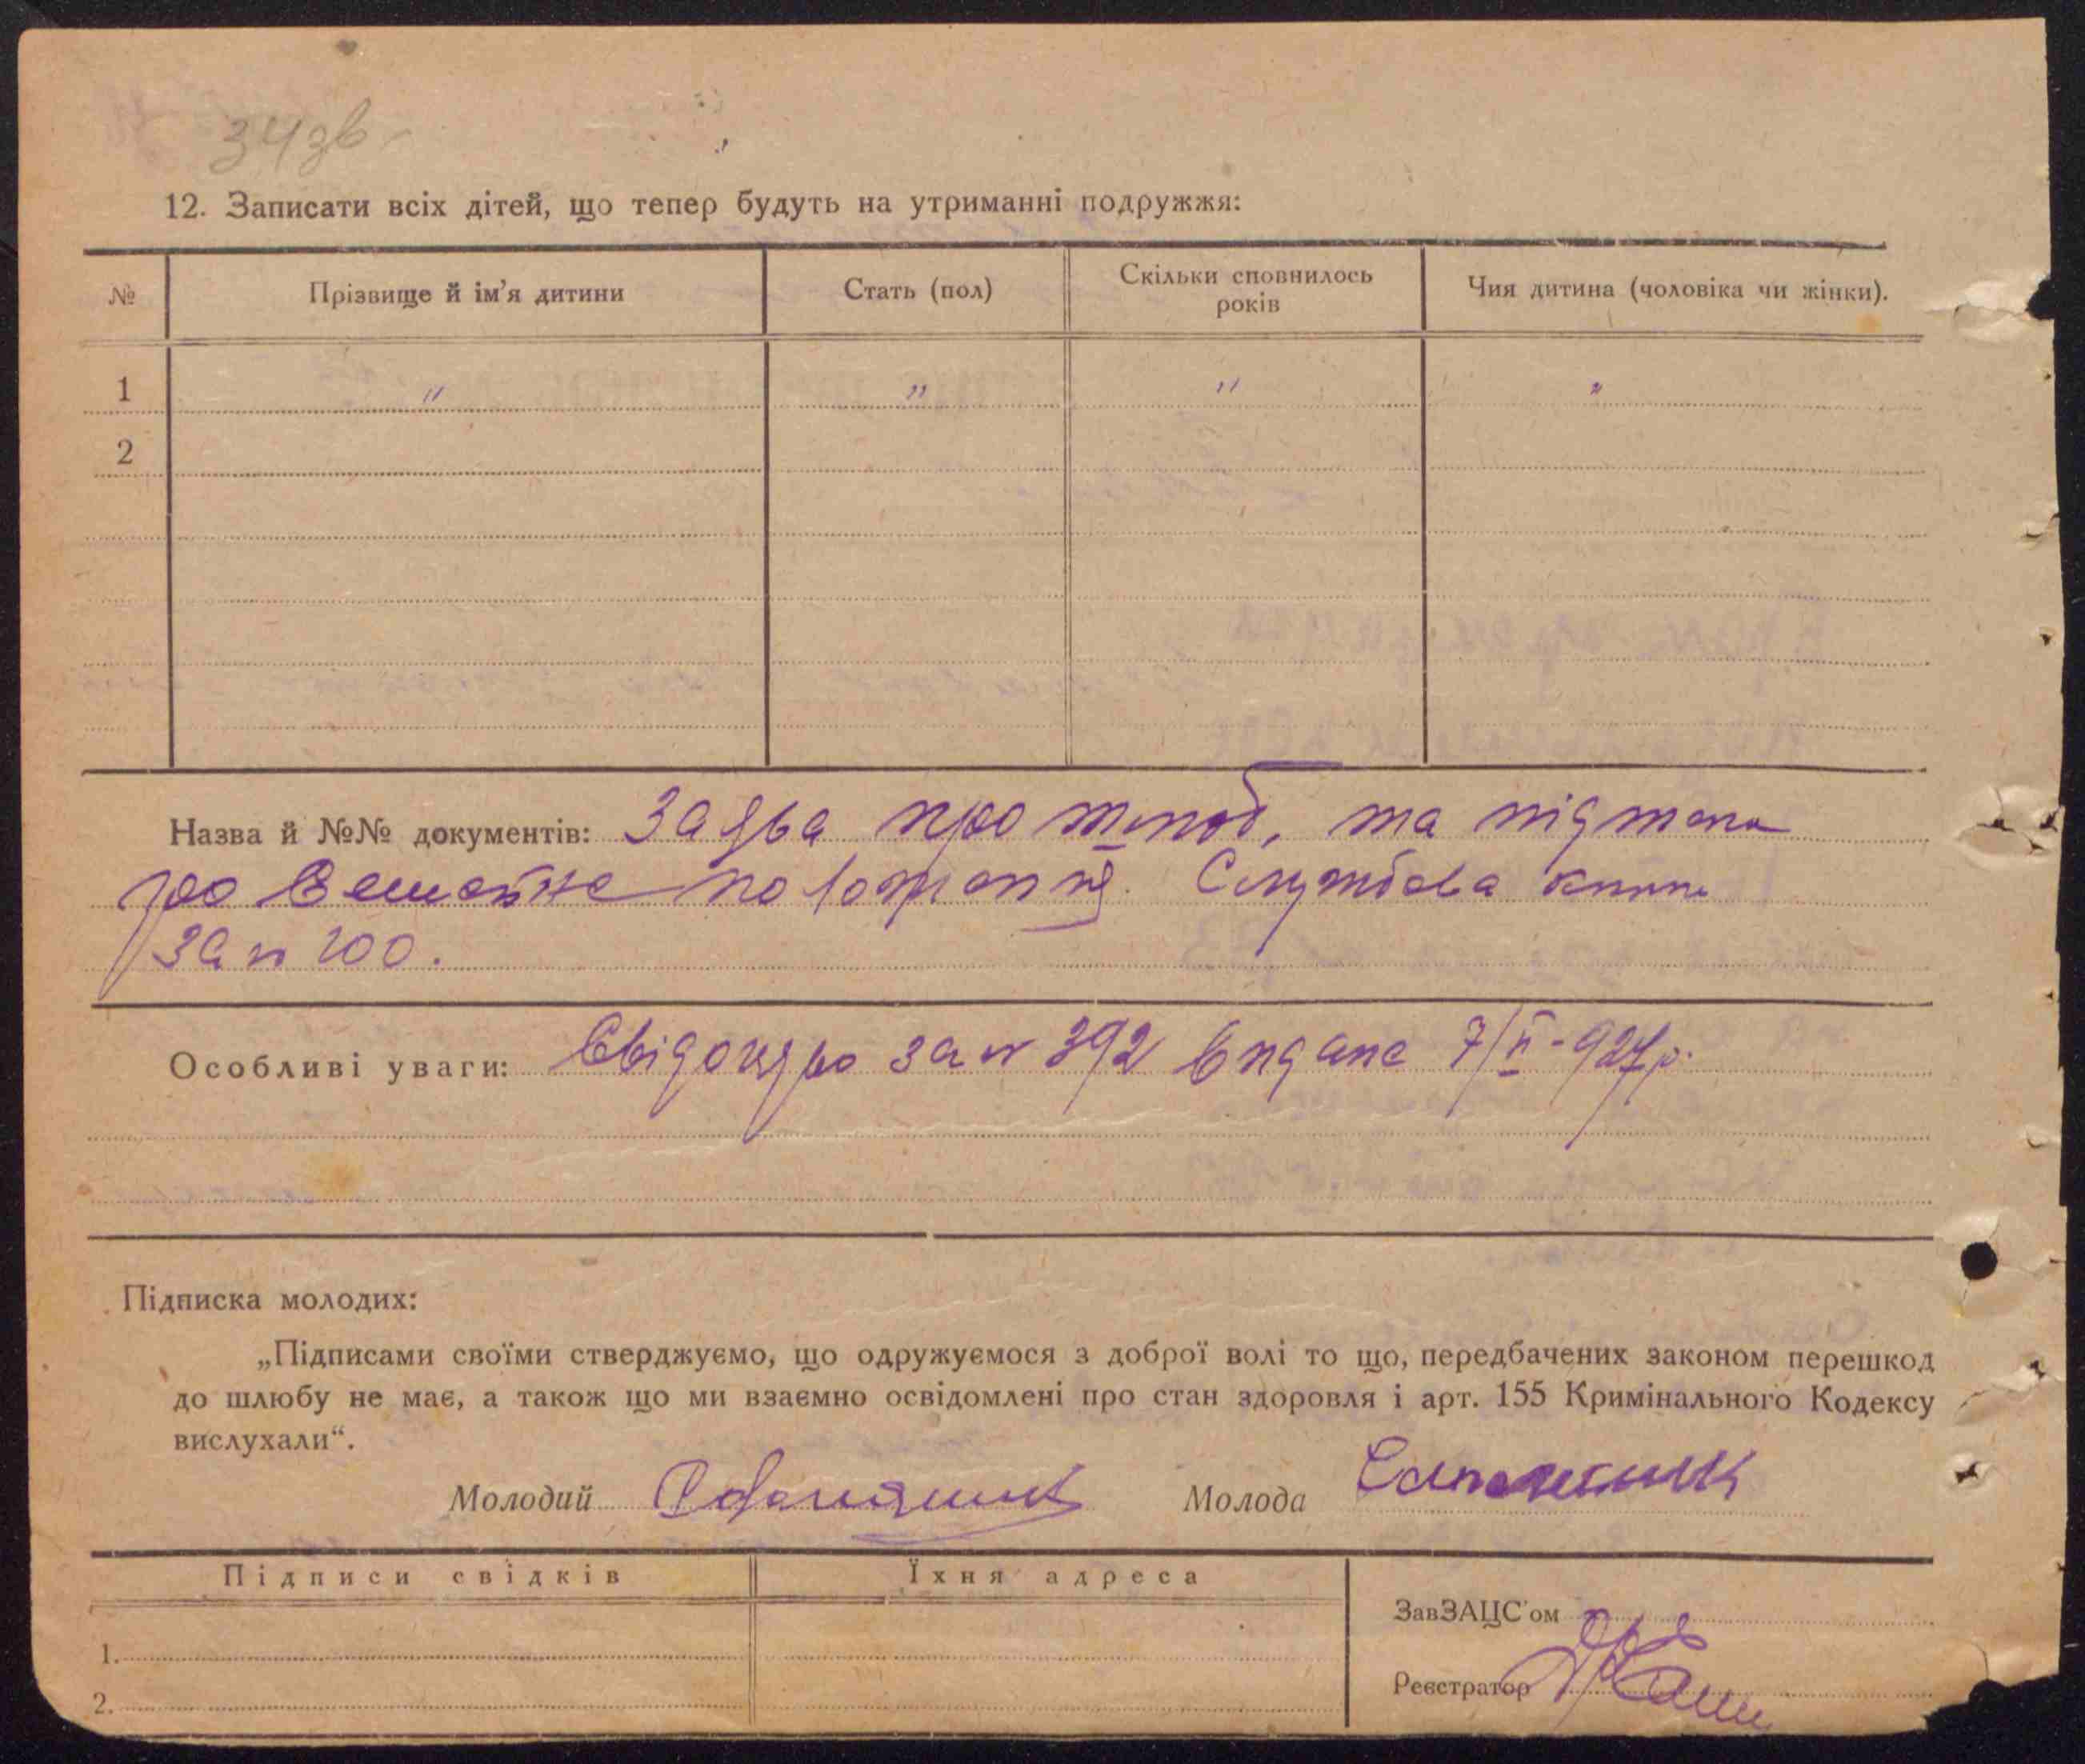 34зв
12. Записати всіх дітей, що тепер будуть на утриманні подружжя:
№ Прізвище й ім'я дитини Стать (пол) Скільки сповнилось років Чия дитина (чоловіка чи жінки).
1 " " " "
2
Назва й №№ документів: Заява про шлюб, та підписка
про сімейне положення. Службова книжка
за № 100.
Особливі уваги: Свідоцтво за № 392 видане 7/II-927р.
Підписка молодих:
„Підписами своїми стверджуємо, що одружуємося з доброї волі то що, передбачених законом перешкод
до шлюбу не має, а також що ми взаємно освідомлені про стан здоровля і арт. 155 Кримінального Кодексу
вислухали“.
Молодий Молода
Підписи свідків Їхня адреса
ЗавЗАЦС'ом
1.
Реєстратор
2.